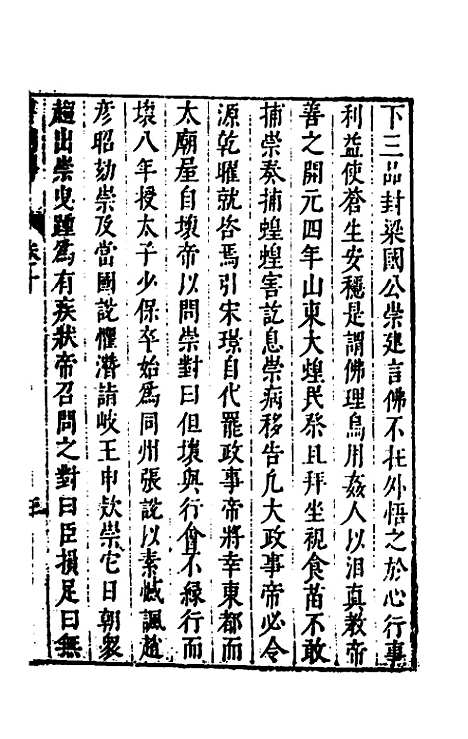 下三品封梁國公崇建言佛不在外悟之於心行事
利益使蒼生安穩是謂佛理烏用姦人以汨真教帝
善之開元四年山東大蝗民祭且拜坐視食苗不敢
捕崇奏捕蝗蝗害訖息崇病移告凡大政事帝必令
源乾曜就咨焉引宋璟自代罷政事帝將幸東都而
太廟屋自壞帝以問崇對曰但壞與行會不緣行而
壞八年授太子少保卒始為同州張說以素憾諷趙
彥昭劾崇及當國說懼潛詣岐王申欵崇它日朝衆
趨出崇曳踵為有疾狀帝召問之對曰臣損足曰無